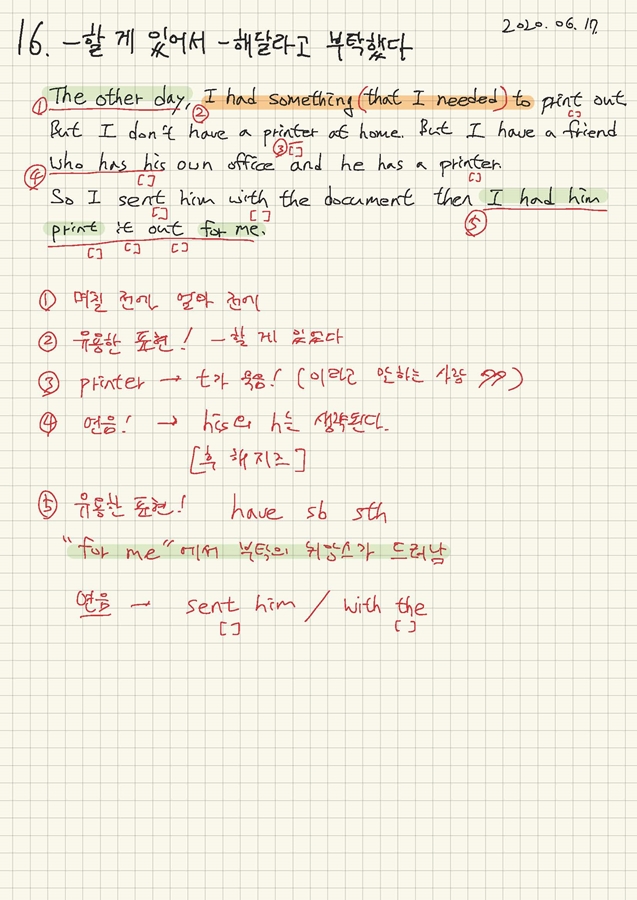 16. -할 게 있어서 -해달라고 부탁했다
2020.06.17
① The other day, ② I had something (that I needed) to print out
But I don't have a printer at home. But I have a friend
③ []
④ who has his own office and he has a printer.
[] []
So I sent him with the document then I had him
[] [] ⑤
print it out for me.
[] [] []
①며칠 전에 얼마 전에
② 유용한 표현! -할 게 있었다
③ printer → t가 묵음! (이라고 안하는 사람 有)
④ 연음! → his의 h는 생략된다.
[후 해지즈]
⑤ 유용한 표현! have sb sth
"for me"에서 부탁의 뉘앙스가 드러남
연음 → sent him / with the
[] []